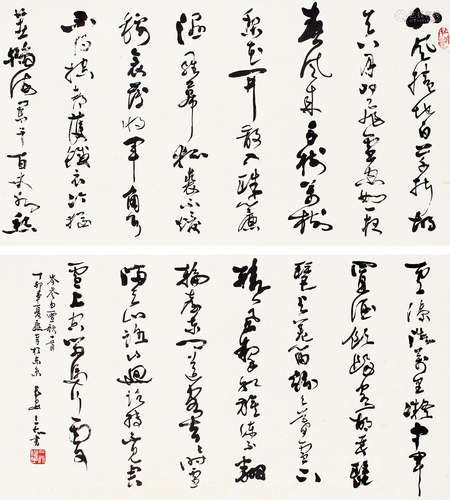 北風捲地白草折胡
天八月即飛雪忽如一夜
春風來千樹萬樹
梨花開散入珠簾
濕羅幕狐裘不暖
錦衾薄將軍角弓
不得控都護鐵衣冷猶
著瀚海闌干百丈冰愁
雲慘淡萬里凝中軍
置酒飲歸客胡琴琵
琶與羌笛紛紛暮雪下
轅門風掣紅旗凍不翻
輪臺東門送君去去時雪
滿天山路山迴路轉不見君
雪上空留馬行處
岑參白雪歌一首
丁卯年夏